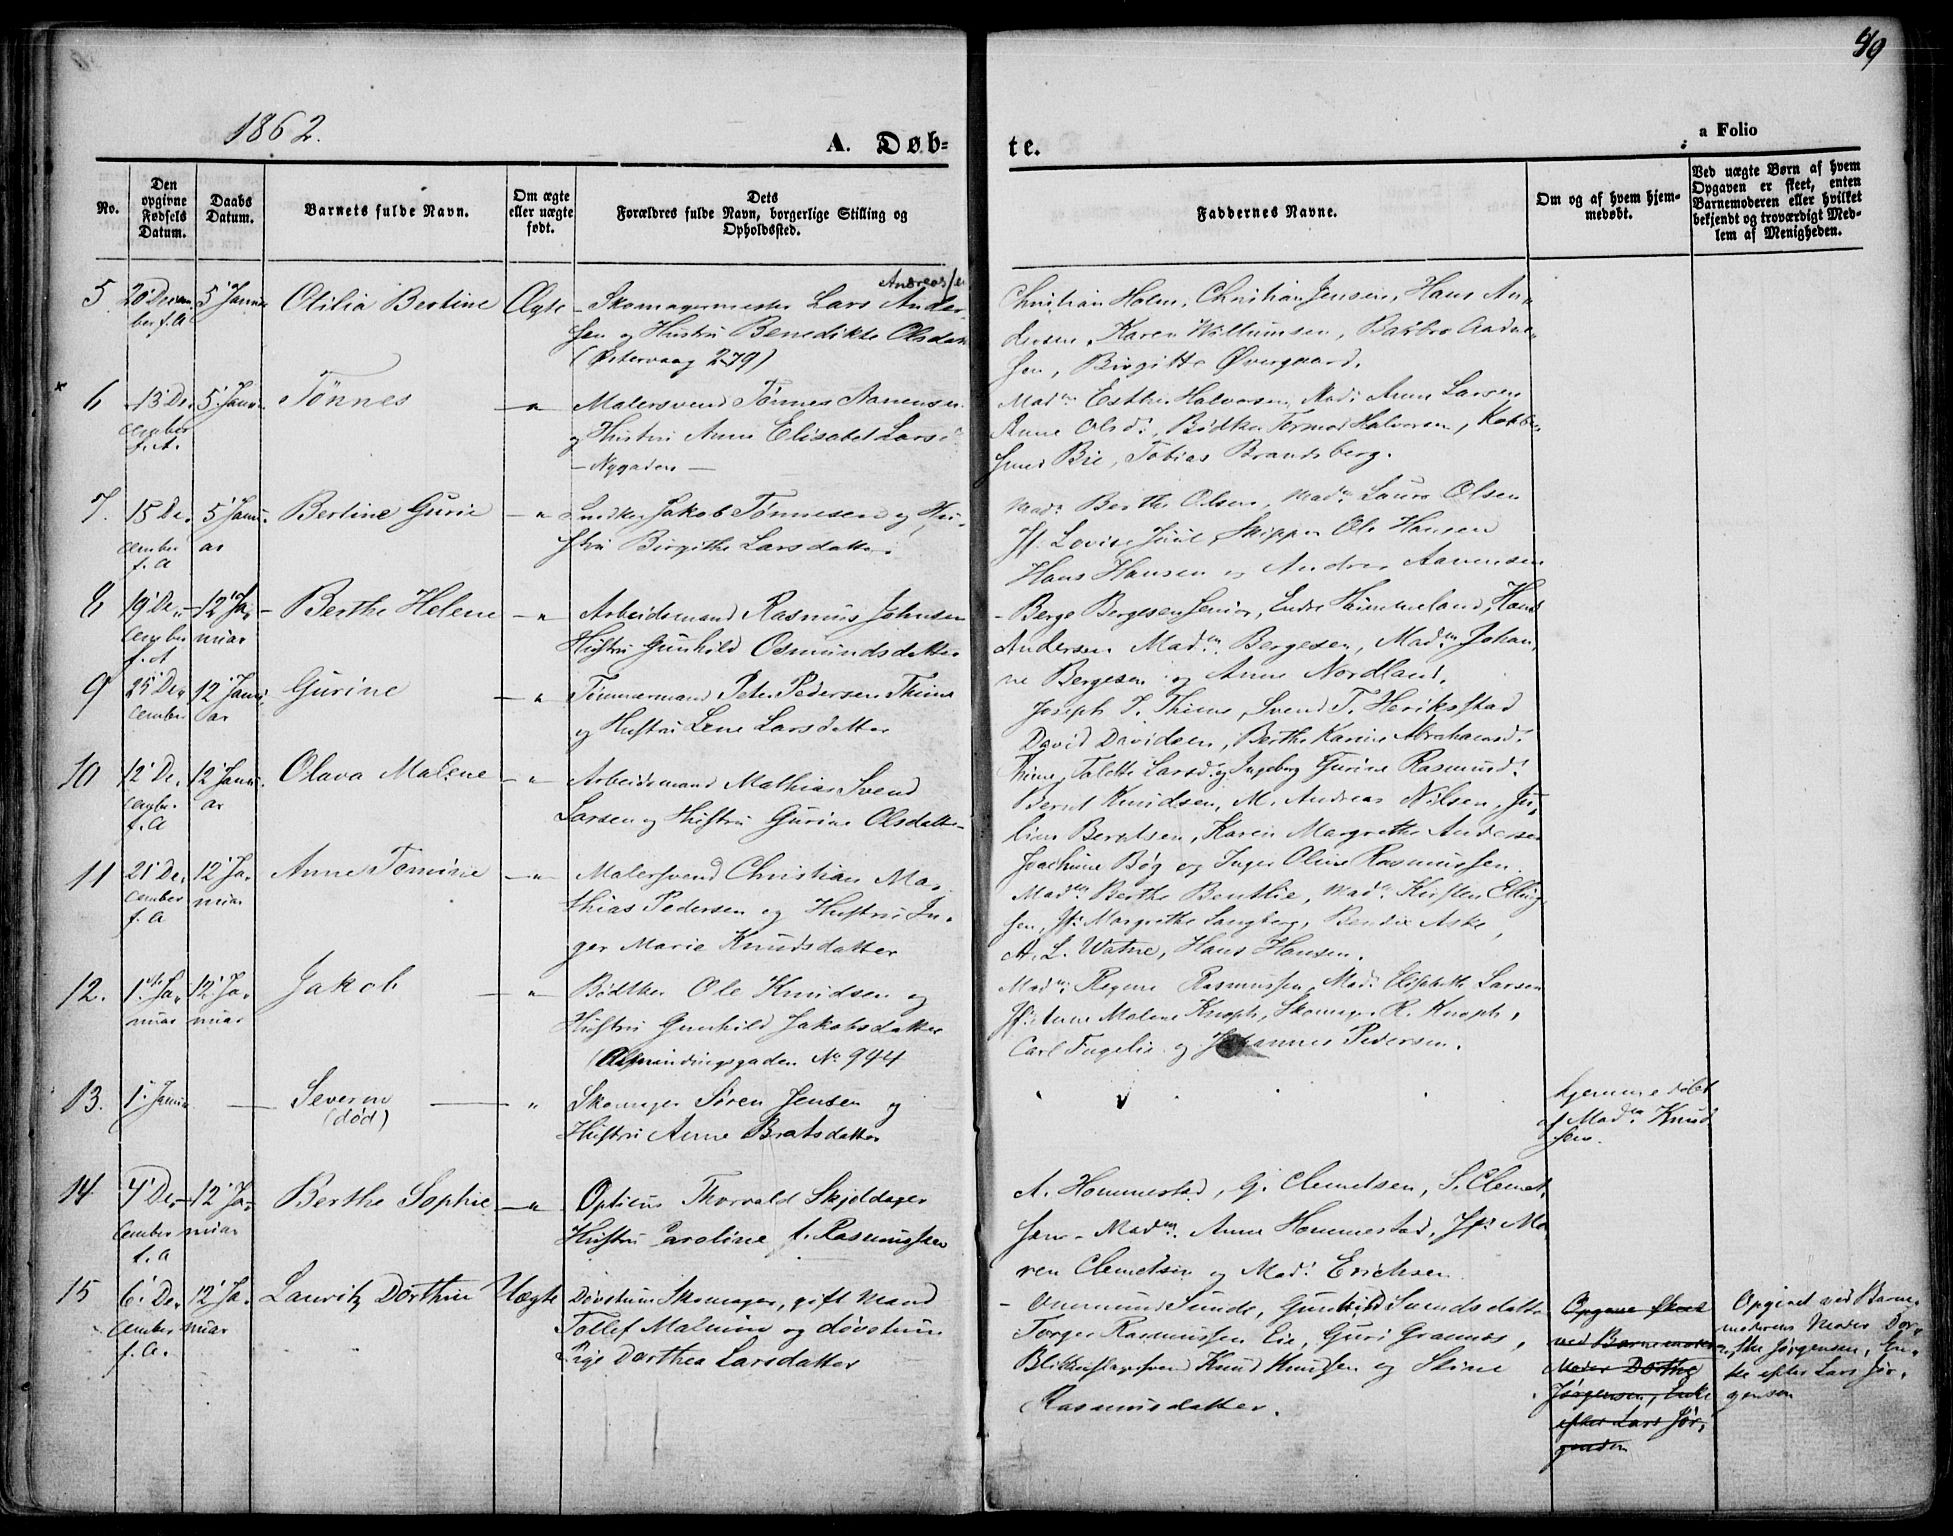 49
1862.
A. Døb=
te.
a Folio
No.
Den opgivne Fødsels Datum.
Daabs Datum.
Barnets fulde Navn.
Om ægte eller uægte født.
Dets
Forældres fulde Navn, borgerlige Stilling og
Opholdssted.
Faddernes Navne.
Om og af hvem hjem-
medøbt.
Ved uægte Børn af hvem
Opgaven er skeet, enten
Barnemoderen eller hvilket
bekjendt og troværdigt Med-
lem af Menigheden.
5 20 Decem 5' Januar Otilia Bertine Ægte Skomagermester Lars Ander- Andreas/en
ber f.A sen og Hustru Benedikte Olsdatt
(Østervaag 279)
Christian Holm, Christian Jensen, Hans An-
dersen, Karen Willumsen, Barbro Aadne-
sen, Birgitte Øvergaard.
6 13' De- 5' Janu. Tønnes — " Malersvend Tønnes Aanensen
cember og Hustru Anne Elisabet Larsd
f.A. — Nygaden —
Madm Esther Halvorsen, Mad: Anne Larsen
Anne Olsd:, Bødker Tormod Halvorsen, Kobber-
smed Bie, Tobias Brandsberg.
7. 15 De- 5' Janu- Bertine Gurie — " Snedker Jakob Tønnesen og Hu-
cember ar stru Birgithe Larsdatter
f.A
Madm Berthe Olsen, Madm Laura Olsen
Jf. Lovise Juul, Skipper Ole Hansen
Hans Hansen og Andrea Aanensen
8 19' De- 12' Ja- Berthe Helene — " Arbeidsmand Rasmus Johnsen
cember nuar Hustru Gunhild Osmundsdatter
f.A
Berge Bergesen Senior, Endre Himmeland, Hans
Andersen, Madm Bergesen, Madm Johan-
ne Bergesen og Anne Nordland.
9 25' De- 12' Janu- Gurine — " Tømmermand Peter Pedersen Thime
cember ar og Hustru Lene Larsdatter
Joseph P. Thime, Svend T. Herikstad
David Davidsen, Berthe Karine Abrahamsd:
Thime, Talette Larsd: og Ingeborg Gurine Rasmusd:
10 12' De- 12' Janu- Olava Malene — " Arbeidsmand Mathias Svend
cember ar Larsen og Hustru Gurine Olsdatter
f.A
Bernt Knudsen, M. Andreas Nilsen, Ju-
lius Berntsen, Karen Margrethe Andersen
Joachime Bøg og Inger Oline Rasmussen.
11 21' De- 12' Ja- Anne Tomine — " Malersvend Christian Ma-
cember nuar thias Pedersen og Hustru In-
f.A ger Marie Knudsdatter
Madm Berthe Benthie, Madm Kirsten Elling-
sen, Jf: Margrethe Langberg, Bendix Aske,
A. L. Watne, Hans Hansen.
12. 1ste Ja- 12' Ja- Jakob — " Bødtker Ole Knudsen og
nuar nuar Hustru Gunhild Jakobsdatter
(Almindingsgaden No 944
Madm: Regine Rasmussen, Mad: Elisabeth Larsen
Jf: Anne Malene Knoph, Skomager R. Knoph,
Carl Fugelie og Johannes Pedersen.
13. 1' Januar — Severin — " Skomager Søren Jensen og
(død) Hustru Anne Bratsdatter
hjemmedøbt
af Madm Knud
sen.
14 4' De- 12' Ja- Berthe Sophie — " Opticus Thorvald Skjoldager
cember nuar Hustru Caroline f. Rasmussen
f.A
A. Hommestad, G. Clemetsen, S. Clemet-
sen - Madm. Anne Hommestad, Jf: Ma-
ren Clemetsen og Mad: Erichsen
15 6' De- 12' Ja- Lauritz Dorthin Uægte Døvstum Skomager, gift Mand
cember nuar Tollef Malmin og døvstum
f.A. Pige Dorthea Larsdatter
Ommund Sunde, Gunhild Svendsdatter
Torger Rasmussen Eie, Guri Grannes,
Blikkenslagersvend Knud Knudsen og Stine
Rasmusdatter.
Opgave skeet
ved Barnemoderens
Moder Dorthe
Jørgensen, Enke
efter Lars Jør-
gensen
Opgivet ved Barne-
moderens Moder Dor-
the Jørgensen, En-
ke efter Lars Jør-
gensen